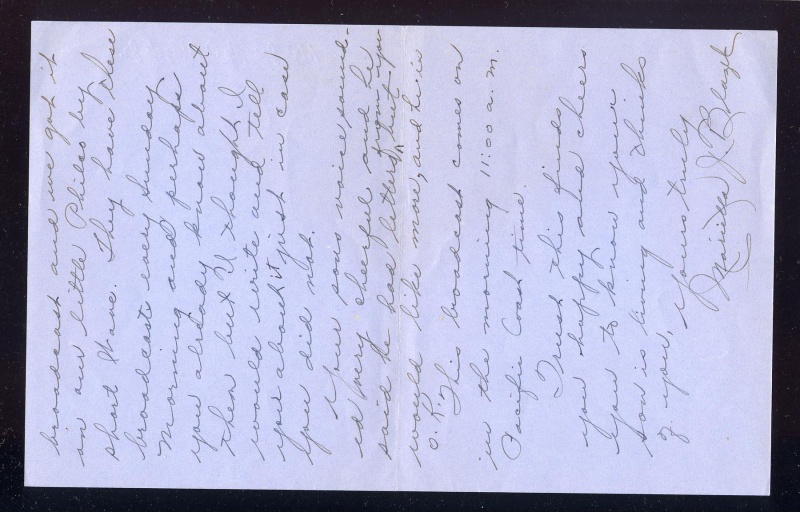 broadcast and we got it
on our little Philco by
short Wave. They have these
broadcasts every Sunday
Morning and perhaps
you already know about
them but I thought I
would write and tell
you about it just in case
you did not.
Your sons voice sound-
ed very cheerful and he
said he had letters from you but
would like more, and he is
O.K. This broadcast comes on
in the morning 11:00 a.m.
Pacific Coast time.
Trust this finds
you happy and cheers
you to know your
son is living and thinks
of you,
Yours truly
Marietta J.